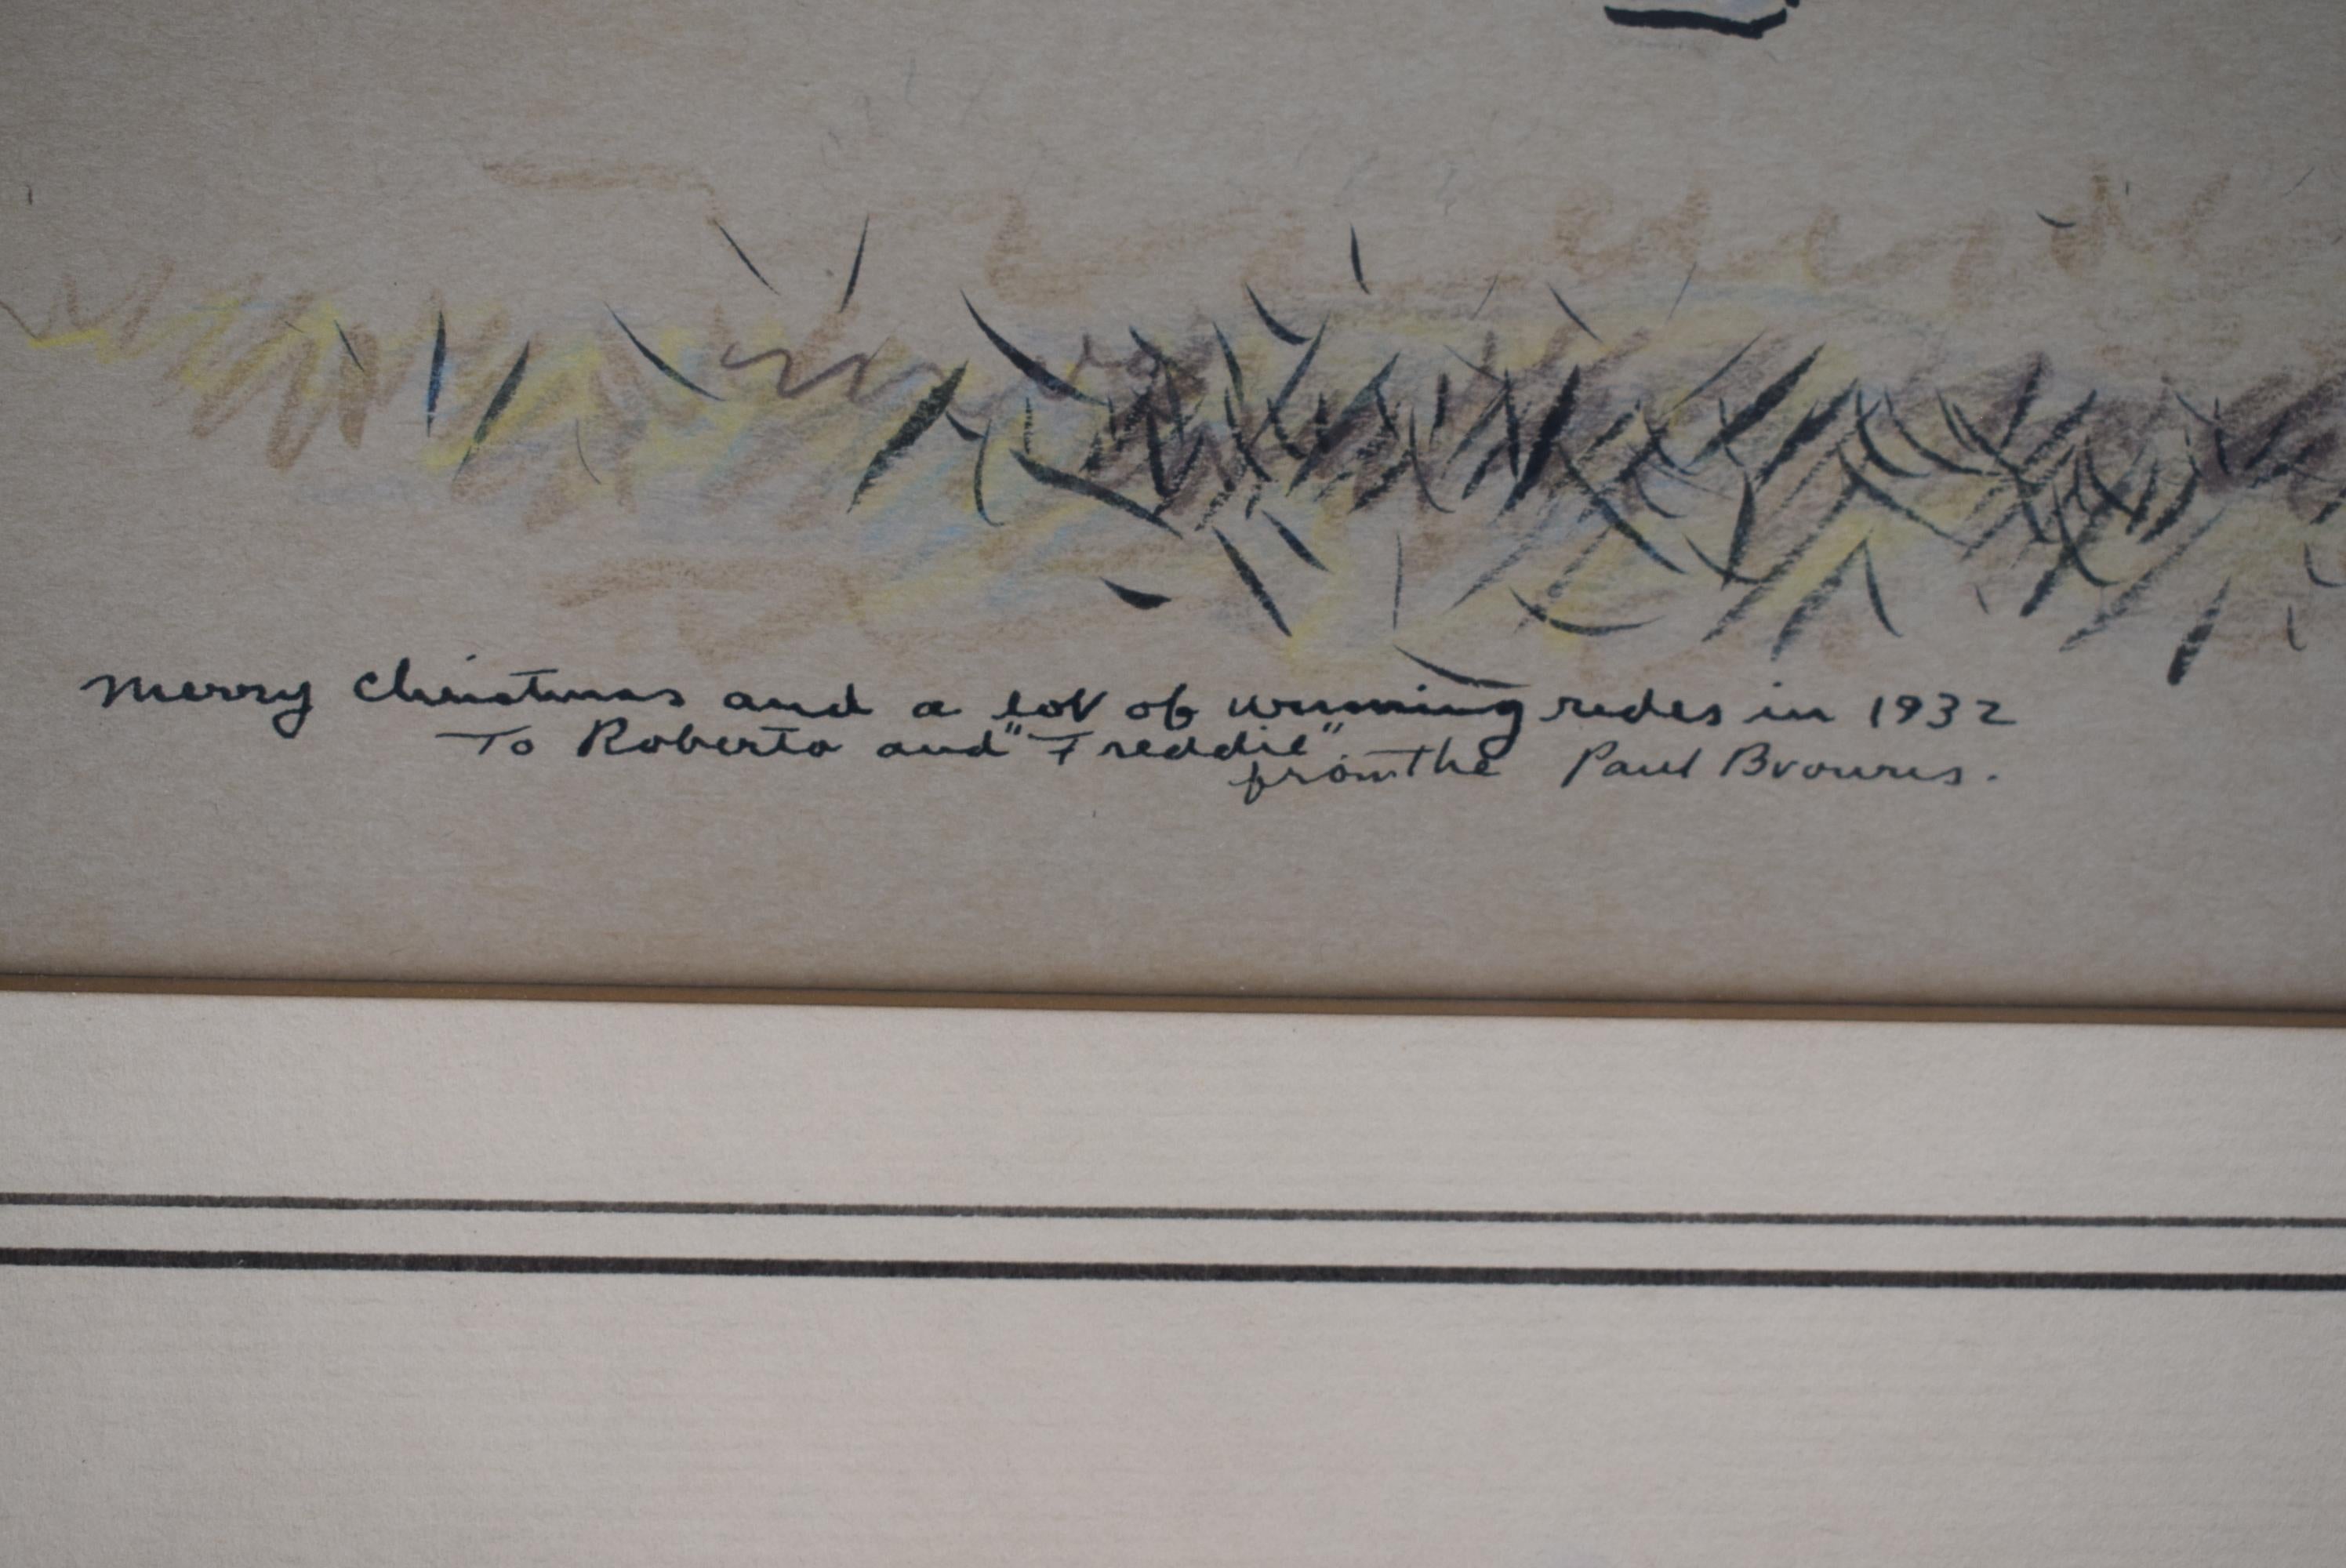 Merry Christmas and a lot of winning rides in 1932
To Roberta and "Freddie"
from the Paul Browns.